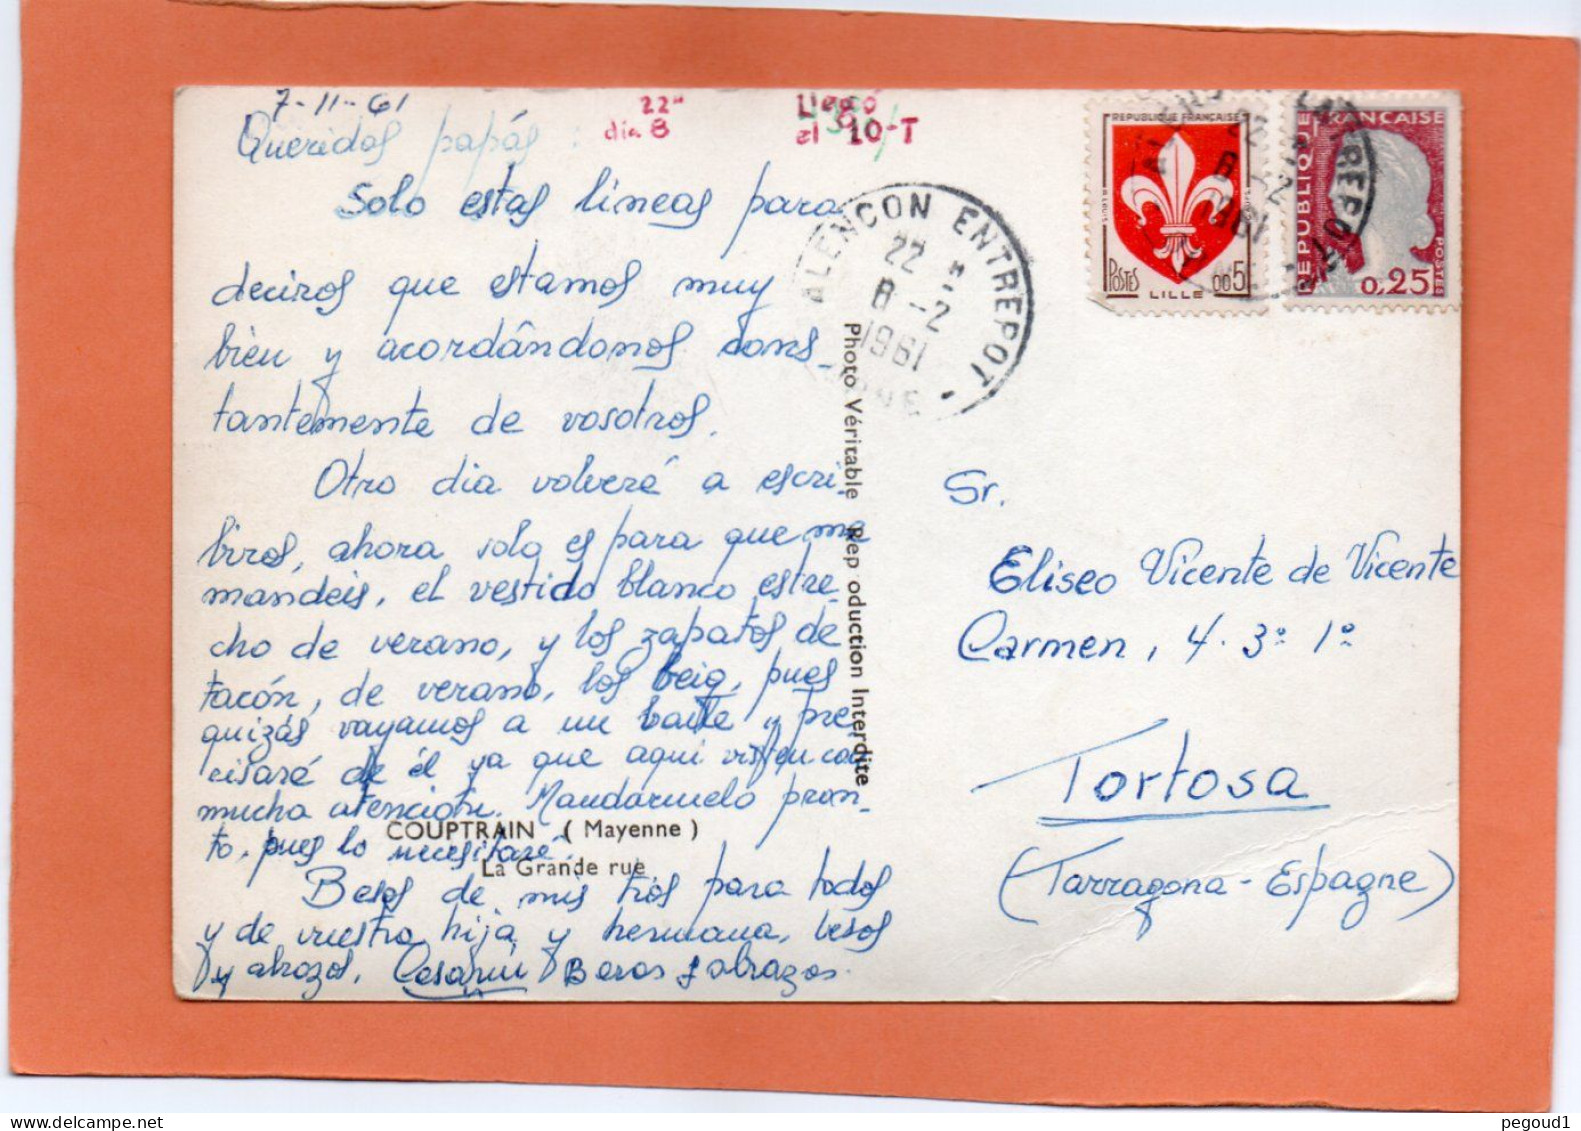 7-11-61
22"
día 8
Llegó
el 10-T
Queridos papás:
Solo estas líneas para
deciros que estamos muy
bien y acordándonos cons-
tantemente de vosotros.
Otro dia volveré a escri-
biros, ahora solo es para que me
mandéis, el vestido blanco estre-
cho de verano, y los zapatos de
tacón, de verano, los beig, pues
quizás vayamos a un baile y pre-
cisaré de él ya que aquí visten con
mucha atención. Mandarmelo pron-
to, pues lo necesitaré.
Besos de mis tíos para todos
y de vuestra hija y hermana, besos
y abrazos,
Besos y abrazos.
COUPTRAIN ( Mayenne )
La Grande rue
Photo Véritable Rep oduction Interdite
ALENCON ENTREPOT
22
8 -2
1961
ORNE
REPUBLIQUE FRANÇAISE
POSTES
LILLE
0,05
REPUBLIQUE FRANÇAISE
POSTES
0,25
22
8 -2
1961
Sr.
Eliseo Vicente de Vicente
Carmen, 4. 3º 1º
Tortosa
(Tarragona - Espagne)
www.delcampe.net
pegoud1